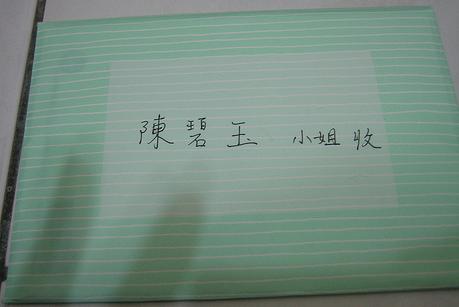 陳碧玉 小姐 收